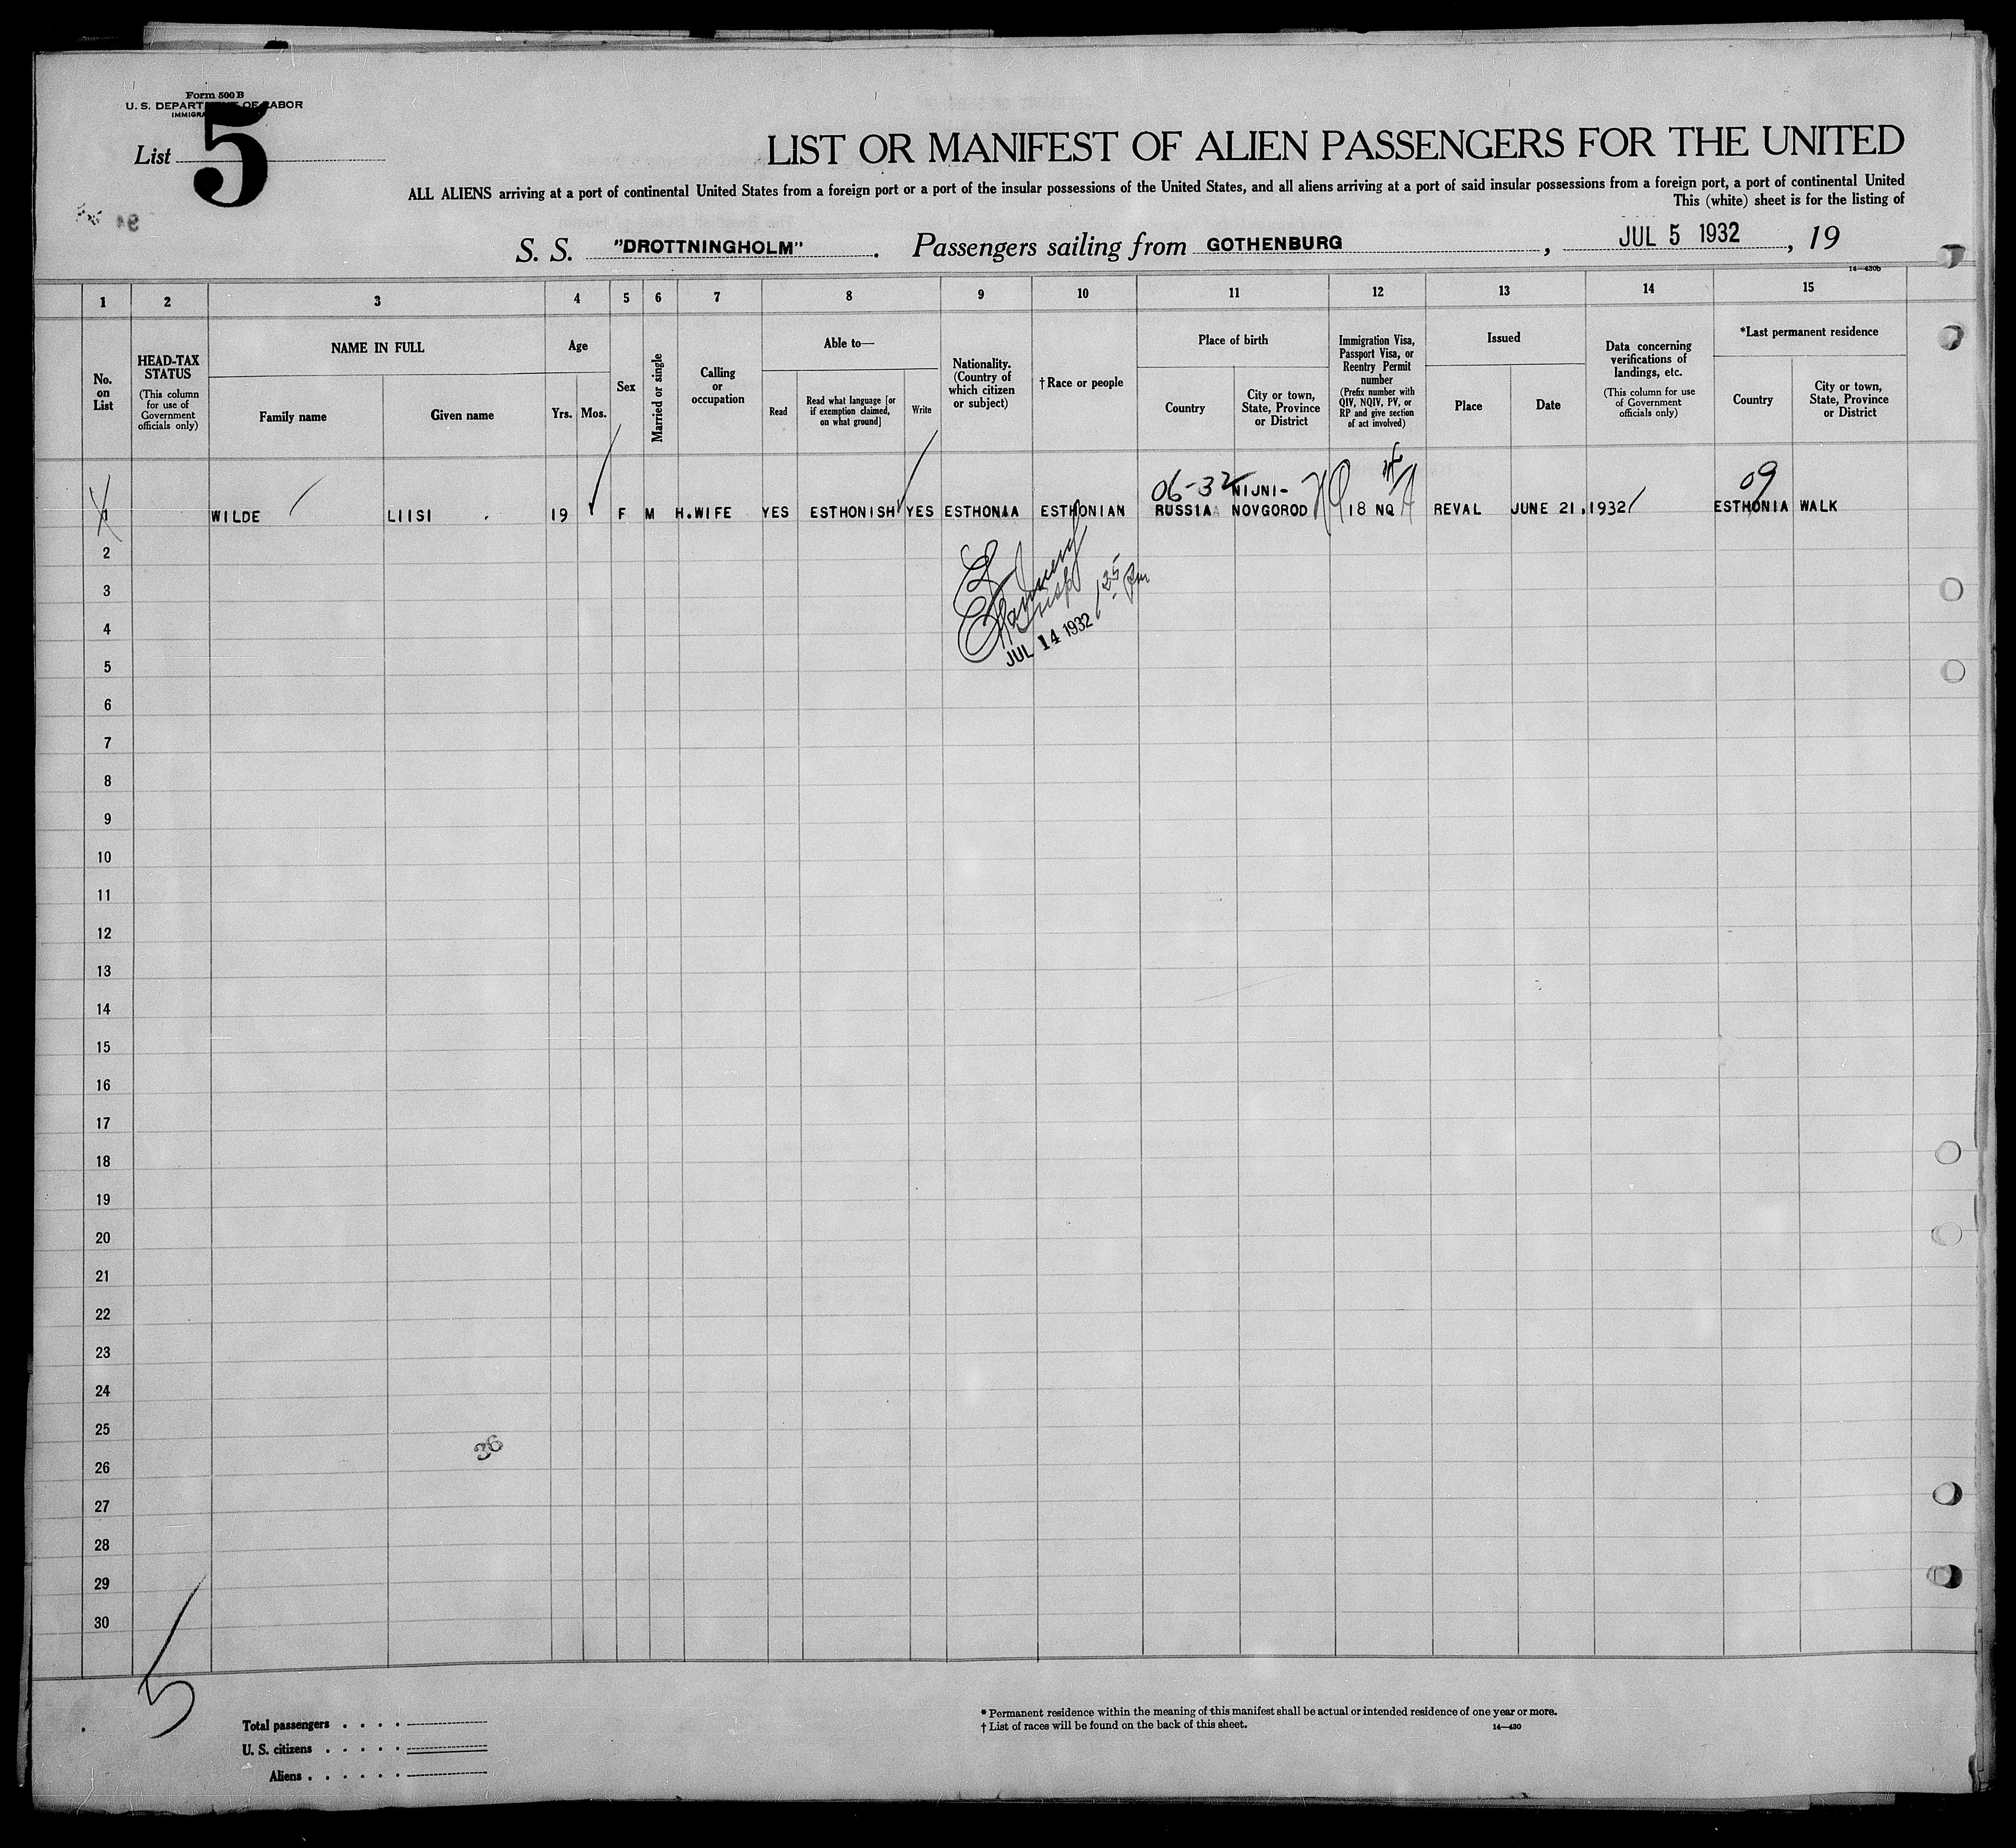 Form 500 B
U. S. DEPARTMENT OF LABOR
IMMIGRA
List 5
LIST OR MANIFEST OF ALIEN PASSENGERS FOR THE UNITED
ALL ALIENS arriving at a port of continental United States from a foreign port or a port of the insular possessions of the United States, and all aliens arriving at a port of said insular possessions from a foreign port, a port of continental United
This (white) sheet is for the listing of
94
S. S. "DROTTNINGHOLM". Passengers sailing from GOTHENBURG, JUL 5 1932, 19
14—430b
1 2 3 4 5 6 7 8 9 10 11 12 13 14 15
No. on List
HEAD-TAX STATUS
(This column for use of Government officials only)
NAME IN FULL
Family name
Given name
Age
Yrs.
Mos.
Sex
Married or single
Calling or occupation
Able to—
Read
Read what language [or if exemption claimed, on what ground]
Write
Nationality. (Country of which citizen or subject)
† Race or people
Place of birth
Country
City or town, State, Province or District
Immigration Visa, Passport Visa, or Reentry Permit number
(Prefix number with QIV, NQIV, PV, or RP and give section of act involved)
Issued
Place
Date
Data concerning verifications of landings, etc.
(This column for use of Government officials only)
*Last permanent residence
Country
City or town, State, Province or District
06-32 NIJNI- 09
1 WILDE LIISI 19 F M H.WIFE YES ESTHONISH YES ESTHONIA ESTHONIAN RUSSIA NOVGOROD 18 NQ REVAL JUNE 21.1932 ESTHONIA WALK
2
3
4
JUL 14 1932 1 35 Pm
5
6
7
8
9
10
11
12
13
14
15
16
17
18
19
20
21
22
23
24
25
36
26
27
28
29
30
5
Total passengers . . . .
U. S. citizens . . . . .
Aliens . . . . . .
* Permanent residence within the meaning of this manifest shall be actual or intended residence of one year or more.
† List of races will be found on the back of this sheet.
14—430